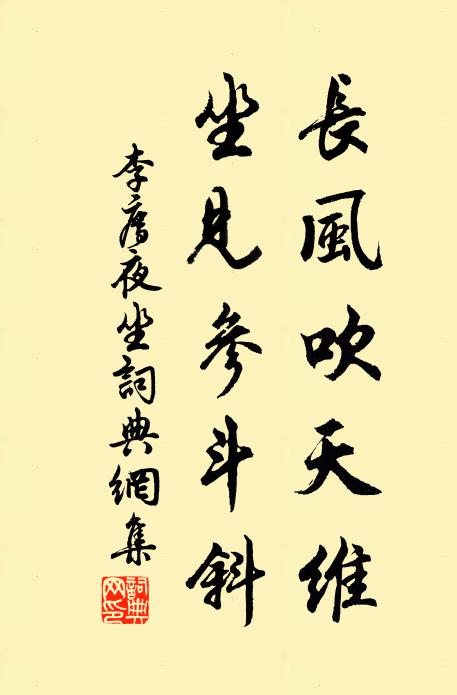 長風吹天維
坐見參斗斜
李夜坐詞典網集
詞典网印